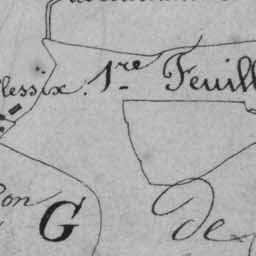 lessix. 1re Feuill
on
G
de